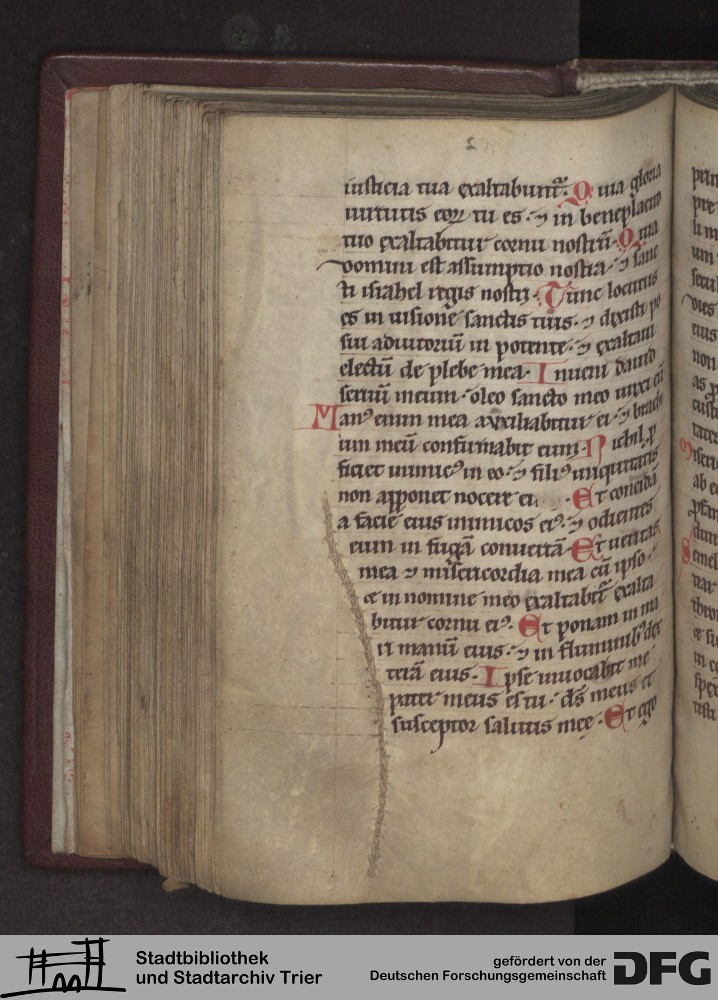 2
iusticia tua exaltabunt᷑. Quia gloria
uirtutis eoꝝ tu es. ⁊ in beneplacito
tuo exaltabitur cornu nostrū. Quia
domini est assumptio nostra. ⁊ sanc
ti israhel regis nostri. Tunc locutus
es in uisione sanctis tuis. ⁊ dixisti po
sui adiutoriū in potente. ⁊ exaltaui
electū de plebe mea. Inueni dauid
seruū meum. oleo sancto meo unxi eū
Manꝰ enim mea auxiliabitur ei. ⁊ brachi
um meū confirmabit eum. Nichil ꝓ
ficiet inimicꝰ in eo. ⁊ filiꝰ iniquitatis
non apponet nocere ei. Et concidā
a facie eius inimicos eiꝰ. ⁊ odientes
eum in fugā conuertā. Et ueritas
mea ⁊ misericordia mea cū ipso.
et in nomine meo exaltabit᷑ exalta
bitur cornu eiꝰ. Et ponam in ma
ri manū eius. ⁊ in fluminibꝰ dex
terā eius. Ipse inuocabit me
pater meus es tu. ds̄ meus et
susceptor salutis meę. Et ego
Stadtbibliothek
und Stadtarchiv Trier
gefördert von der
Deutschen Forschungsgemeinschaft
DFG